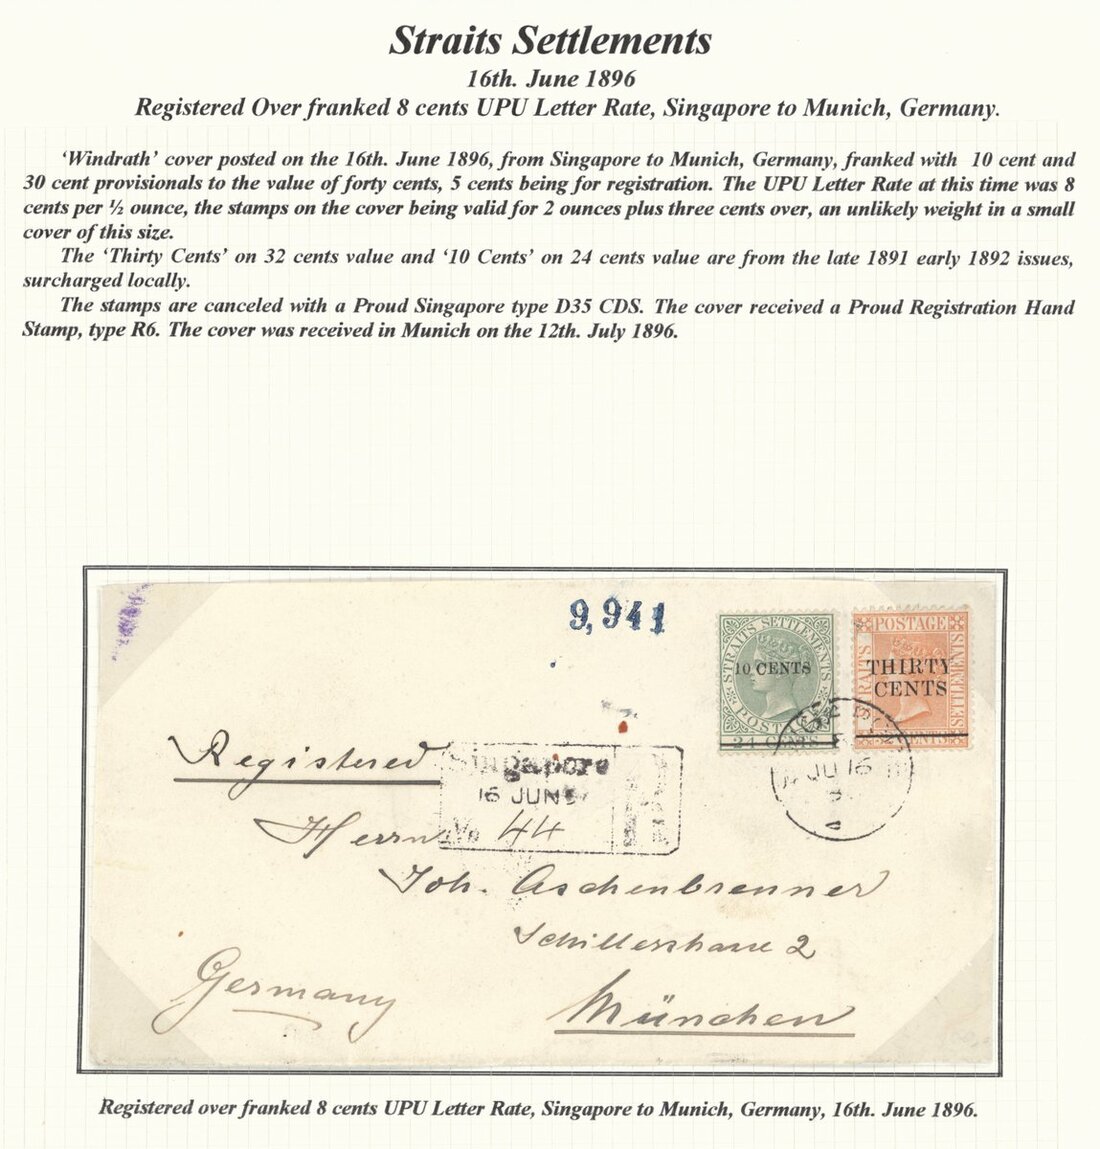 Straits Settlements
16th. June 1896
Registered Over franked 8 cents UPU Letter Rate, Singapore to Munich, Germany.
‘Windrath’ cover posted on the 16th. June 1896, from Singapore to Munich, Germany, franked with 10 cent and
30 cent provisionals to the value of forty cents, 5 cents being for registration. The UPU Letter Rate at this time was 8
cents per ½ ounce, the stamps on the cover being valid for 2 ounces plus three cents over, an unlikely weight in a small
cover of this size.
The ‘Thirty Cents’ on 32 cents value and ‘10 Cents’ on 24 cents value are from the late 1891 early 1892 issues,
surcharged locally.
The stamps are canceled with a Proud Singapore type D35 CDS. The cover received a Proud Registration Hand
Stamp, type R6. The cover was received in Munich on the 12th. July 1896.
9,941
STRAITS SETTLEMENTS
10 CENTS
24 CENTS
POSTAGE
STRAITS
SETTLEMENTS
THIRTY
CENTS
JU 16
Registered
Singapore
16 JUN
No 44
Herrn
Joh. Aschenbrenner
Schillerstrasse 2
Germany
München
Registered over franked 8 cents UPU Letter Rate, Singapore to Munich, Germany, 16th. June 1896.